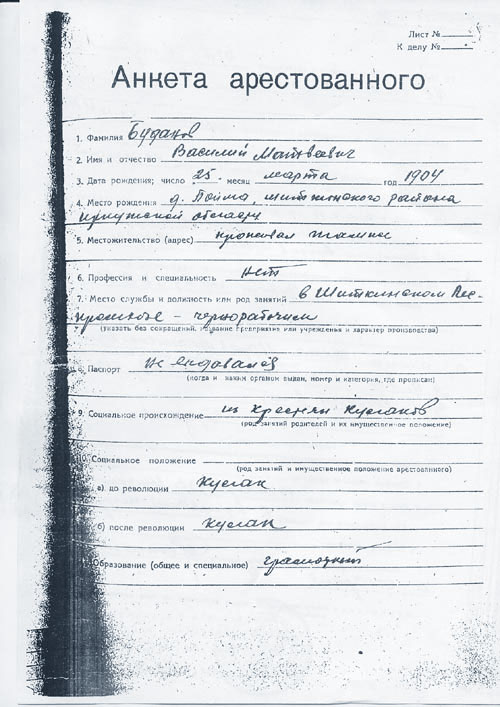 Лист №
К делу №
Анкета арестованного
1. Фамилия Буданов
2. Имя и отчество Василий Матвеевич
3. Дата рождения; число 25 месяц марта год 1904
4. Место рождения д. Пойма, Шиткинского района
Иркутской области
5. Местожительство (адрес) проживал там же
6. Профессия и специальность нет
7. Место службы и должность или род занятий в Шиткинском Лес-
промхозе - чернорабочим
(указать без сокращений, название предприятия или учрежденья и характер производства)
8. Паспорт не выдавался
(когда и каким органом выдан, номер и категория, где прописан)
9. Социальное происхождение из крестьян кулаков
(род занятий родителей и их имущественное положение)
10. Социальное положение
(род занятий и имущественное положение арестованного)
а) до революции кулак
б) после революции кулак
Образование (общее и специальное) грамотный